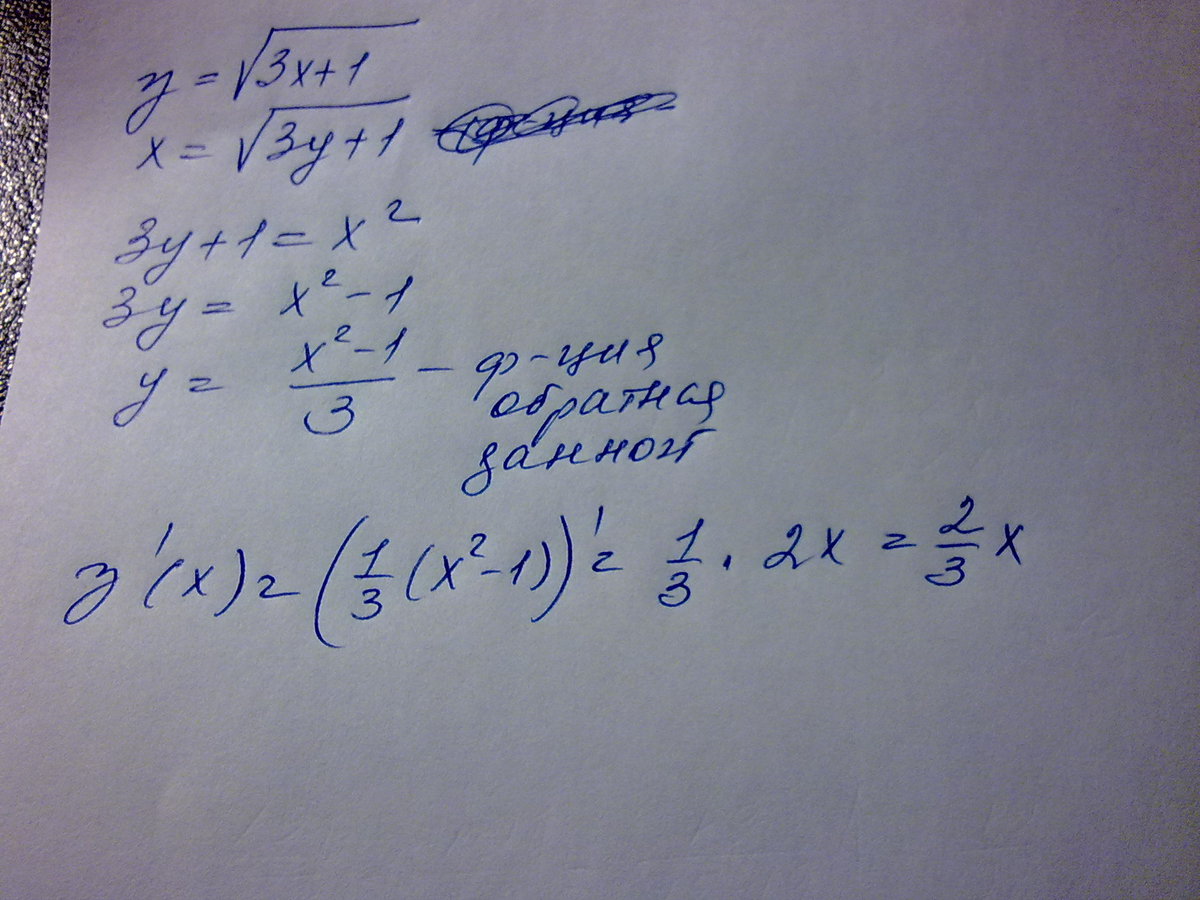 y = √(3x+1)
x = √(3y+1)
3y+1 = x²
3y = x²-1
y = (x²-1)/3 - ф-ция
обратная
данной
y'(x) = (1/3(x²-1))' = 1/3 · 2x = 2/3 x